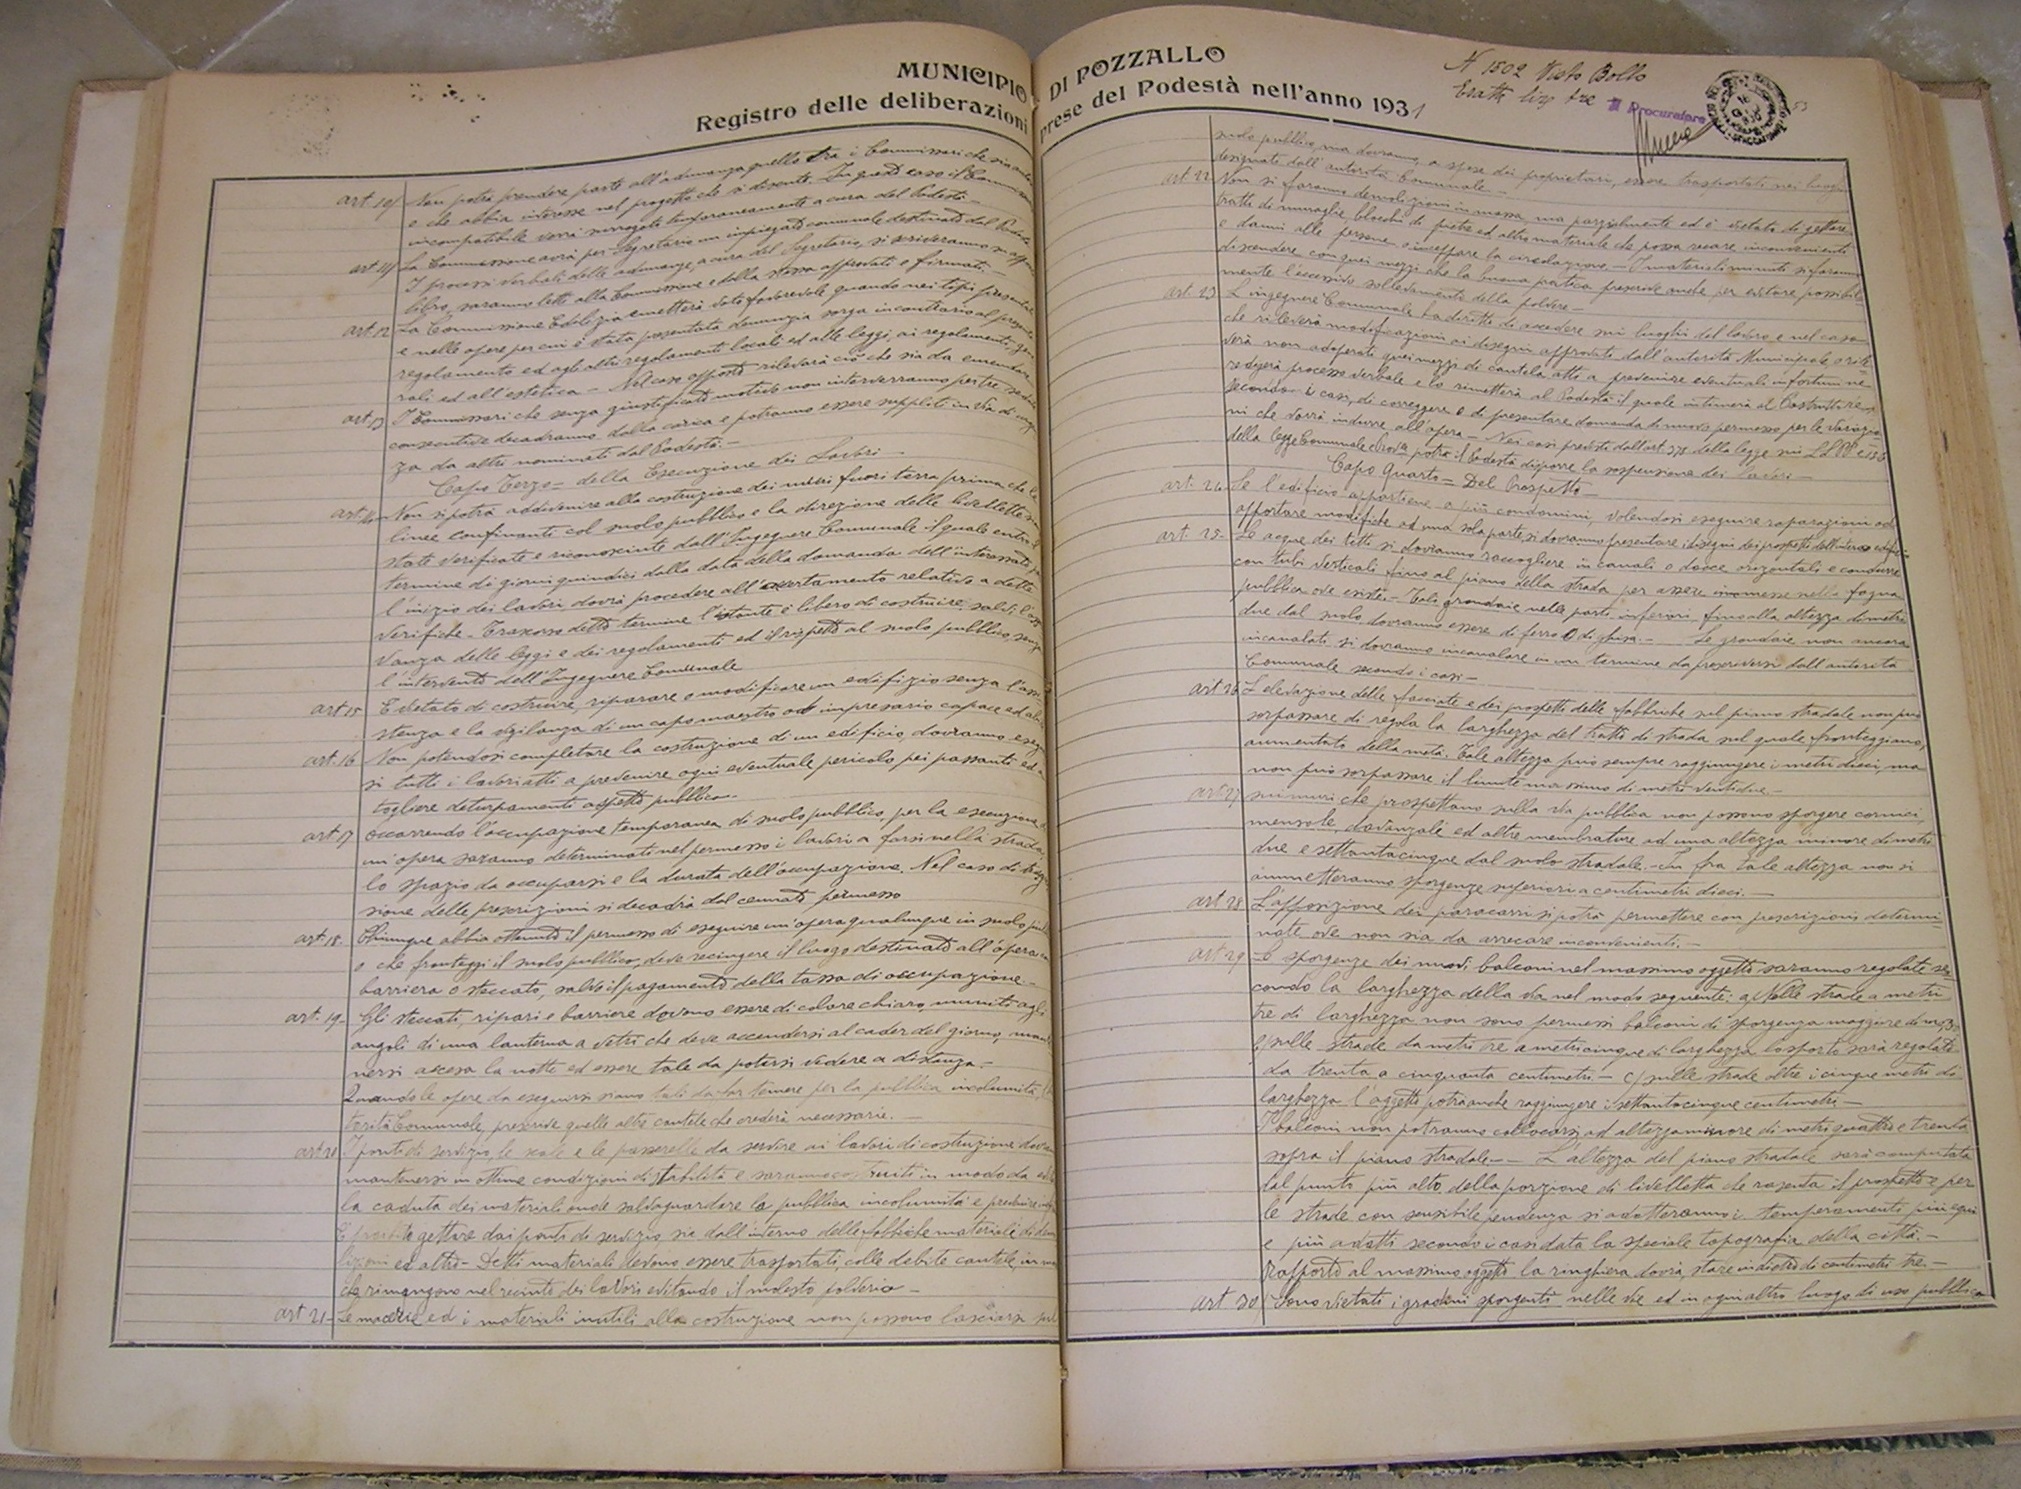 MUNICIPIO DI POZZALLO
Registro delle deliberazioni prese del Podestà nell'anno 1931
N 1502 Visto Bollo
Esatte lire tre
Il Procuratore
art 10 Non potrà prendere parte all'adunanza quello tra i Commissari che sia
e che abbia interesse nel progetto che si discute. In questo caso il
incompatibile verrà surrogato temporaneamente a cura del Podestà.
La Commissione avrà per Segretario un impiegato comunale destinato dal Podestà
art. 11 I processi verbali delle adunanze, a cura del Segretario, si scriveranno in
libro, saranno letti alla Commissione e dalla stessa approvati e firmati.
art. 12 La Commissione Edilizia emetterà voto favorevole quando nei tipi presentati
e nelle opere per cui è stata presentata denunzia sorga in contrario al presente
regolamento ed agli altri regolamenti locali ed alle leggi, ai regolamenti gene
rali ed all'estetica - Nel caso opposto rileverà ciò che sia da emendare
art. 13 I Commissari che senza giustificato motivo non interverranno per tre sedute
consecutive decadranno dalla carica e potranno essere suppliti in via di
za da altri nominati dal Podestà.-
Capo Terzo = della Esecuzione dei Lavori -
art. 14 Non si potrà addivenire alla costruzione dei muri fuori terra prima che le
linee confinanti col suolo pubblico e la direzione delle livellette
state verificate e riconosciute dall'Ingegnere Comunale il quale entro il
termine di giorni quindici dalla data della domanda dell'interessato
l'inizio dei lavori dovrà procedere all'accertamento relativo a dette
verifiche - Trascorso detto termine l'istante è libero di costruire, salvo l'osser
vanza delle leggi e dei regolamenti ed il rispetto al suolo pubblico senza
l'intervento dell'Ingegnere Comunale
art 15 È vietato di costruire, riparare o modificare un edifizio senza l'assi
stenza e la vigilanza di un capo maestro od impresario capace ed
art. 16 Non potendosi completare la costruzione di un edificio, dovranno esegui
si tutti i lavori atti a prevenire ogni eventuale pericolo pei passanti ed a
togliere deturpamenti aspetto pubblico.
art. 17 Occorrendo l'occupazione temporanea di suolo pubblico, per la esecuzione di
un'opera saranno determinati nel permesso i lavori a farsi nella strada,
lo spazio da occuparsi e la durata dell'occupazione. Nel caso di
sione delle prescrizioni si decadrà dal cennato permesso
art. 18. Chiunque abbia ottenuto il permesso di eseguire un'opera qualunque in suolo
o che fronteggi il suolo pubblico, deve recingere il luogo destinato all'opera con
barriera o steccato, salvo il pagamento della tassa di occupazione.
art. 19- Gli steccati, ripari e barriere devono essere di colore chiaro, muniti agli
angoli di una lanterna a vetri che deve accendersi al cader del giorno, mante
nersi accesa la notte ed essere tale da potersi vedere a distanza.-
Quando le opere da eseguirsi siano tali da far temere per la pubblica incolumità,
torità Comunale, prescrive quelle altre cautele che crederà necessarie. -
art 20 I ponti di servizio, le scale e le passerelle da servire ai lavori di costruzione
mantenersi in ottime condizioni di stabilità e saranno costruiti in modo da
la caduta dei materiali onde salvaguardare la pubblica incolumità e prevenire
È proibito gettare dai ponti di servizio, sia dall'interno delle fabbriche materiale di demo
lizioni ed altro - Detti materiali devono essere trasportati, colle debite cautele, in
che rimangono nel recinto dei lavori evitando il molesto polverio -
art 21- Le macerie ed i materiali inutili alla costruzione non possono lasciarsi sul
suolo pubblico, ma dovranno, a spese dei proprietari, essere trasportati nei luoghi
designati dall'autorità Comunale -
art 22 Non si faranno demolizioni in massa, ma parzialmente ed è vietato di gettare
tratti di muraglie, blocchi di pietre ed altro materiale che possa recare inconvenienti
e danni alle persone o inceppare la circolazione. - I materiali minuti si faranno
discendere con quei mezzi che la buona pratica prescrive anche per evitare possibil
mente l'eccessivo sollevamento della polvere -
art. 23 L'ingegnere Comunale ha diritto di accedere sui luoghi del lavoro e nel caso
che rileverà modificazioni ai disegni approvati dall'autorità Municipale, o rite
verà non adoperati quei mezzi di cautela atti a prevenire eventuali infortuni ne
redigerà processo verbale e lo rimetterà al Podestà il quale intimerà al Costruttore,
secondo i casi, di correggere o di presentare domanda di nuovo permesso per le variazio
ni che vorrà indurre all'opera - Nei casi previsti dall'art. 378 della legge sui LL.PP. e 153
della legge Comunale e Prov. potrà il Podestà disporre la sospensione dei lavori -
Capo Quarto = Del Prospetto -
art. 24 Se l'edificio appartiene a più condomini, volendosi eseguire riparazioni od
apportare modifiche ad una sola parte si dovranno presentare i disegni dei prospetti dell'intero edificio
art. 25- Le acque dei tetti si dovranno raccogliere in canali o docce orizzontali e condurre
con tubi verticali fino al piano della strada per essere immesse nella fogna
pubblica ove esiste - Tali grondaie nelle parti inferiori fino alla altezza di metri
due dal suolo dovranno essere di ferro o di ghisa. - Le grondaie non ancora
incanalate si dovranno incanalare in un termine da prescriversi dall'autorità
Comunale secondo i casi -
art 26 L'elevazione delle facciate e dei prospetti delle fabbriche sul piano stradale non può
sorpassare di regola la larghezza del tratto di strada sul quale fronteggiano,
aumentata della metà. Tale altezza può sempre raggiungere i metri dieci, ma
non può sorpassare il limite massimo di metri ventidue -
art. 27 Sui muri che prospettano sulla via pubblica non possono sporgere cornici,
mensole, davanzali ed altre membrature ad una altezza minore di metri
due e settantacinque dal suolo stradale. - In fra tale altezza non si
ammetteranno sporgenze superiori a centimetri dieci. -
art 28 L'apposizione dei paracarri si potrà permettere con prescrizioni determi
nate ove non sia da arrecare inconvenienti. -
art 29 Le sporgenze dei nuovi balconi nel massimo oggetto saranno regolate se
condo la larghezza della via nel modo seguente: a) Nelle strade a metri
tre di larghezza non sono permessi balconi di sporgenza maggiore di m. 0,30
b) sulle strade da metri tre a metri cinque di larghezza lo sporto sarà regolato
da trenta a cinquanta centimetri. - c) sulle strade oltre i cinque metri di
larghezza l'oggetto potrà anche raggiungere i settantacinque centimetri -
I balconi non potranno collocarsi ad altezza minore di metri quattro e trenta
sopra il piano stradale. - L'altezza del piano stradale sarà computata
dal punto più alto della porzione di livelletta che rasenta il prospetto e per
le strade con sensibile pendenza si adotteranno i temperamenti più equi
e più adatti secondo i casi data la speciale topografia della città. -
Rapporto al massimo oggetto la ringhiera dovrà stare indietro di centimetri tre. -
art 30 Sono vietati i gradini sporgenti nelle vie ed in ogni altro luogo di uso pubblico